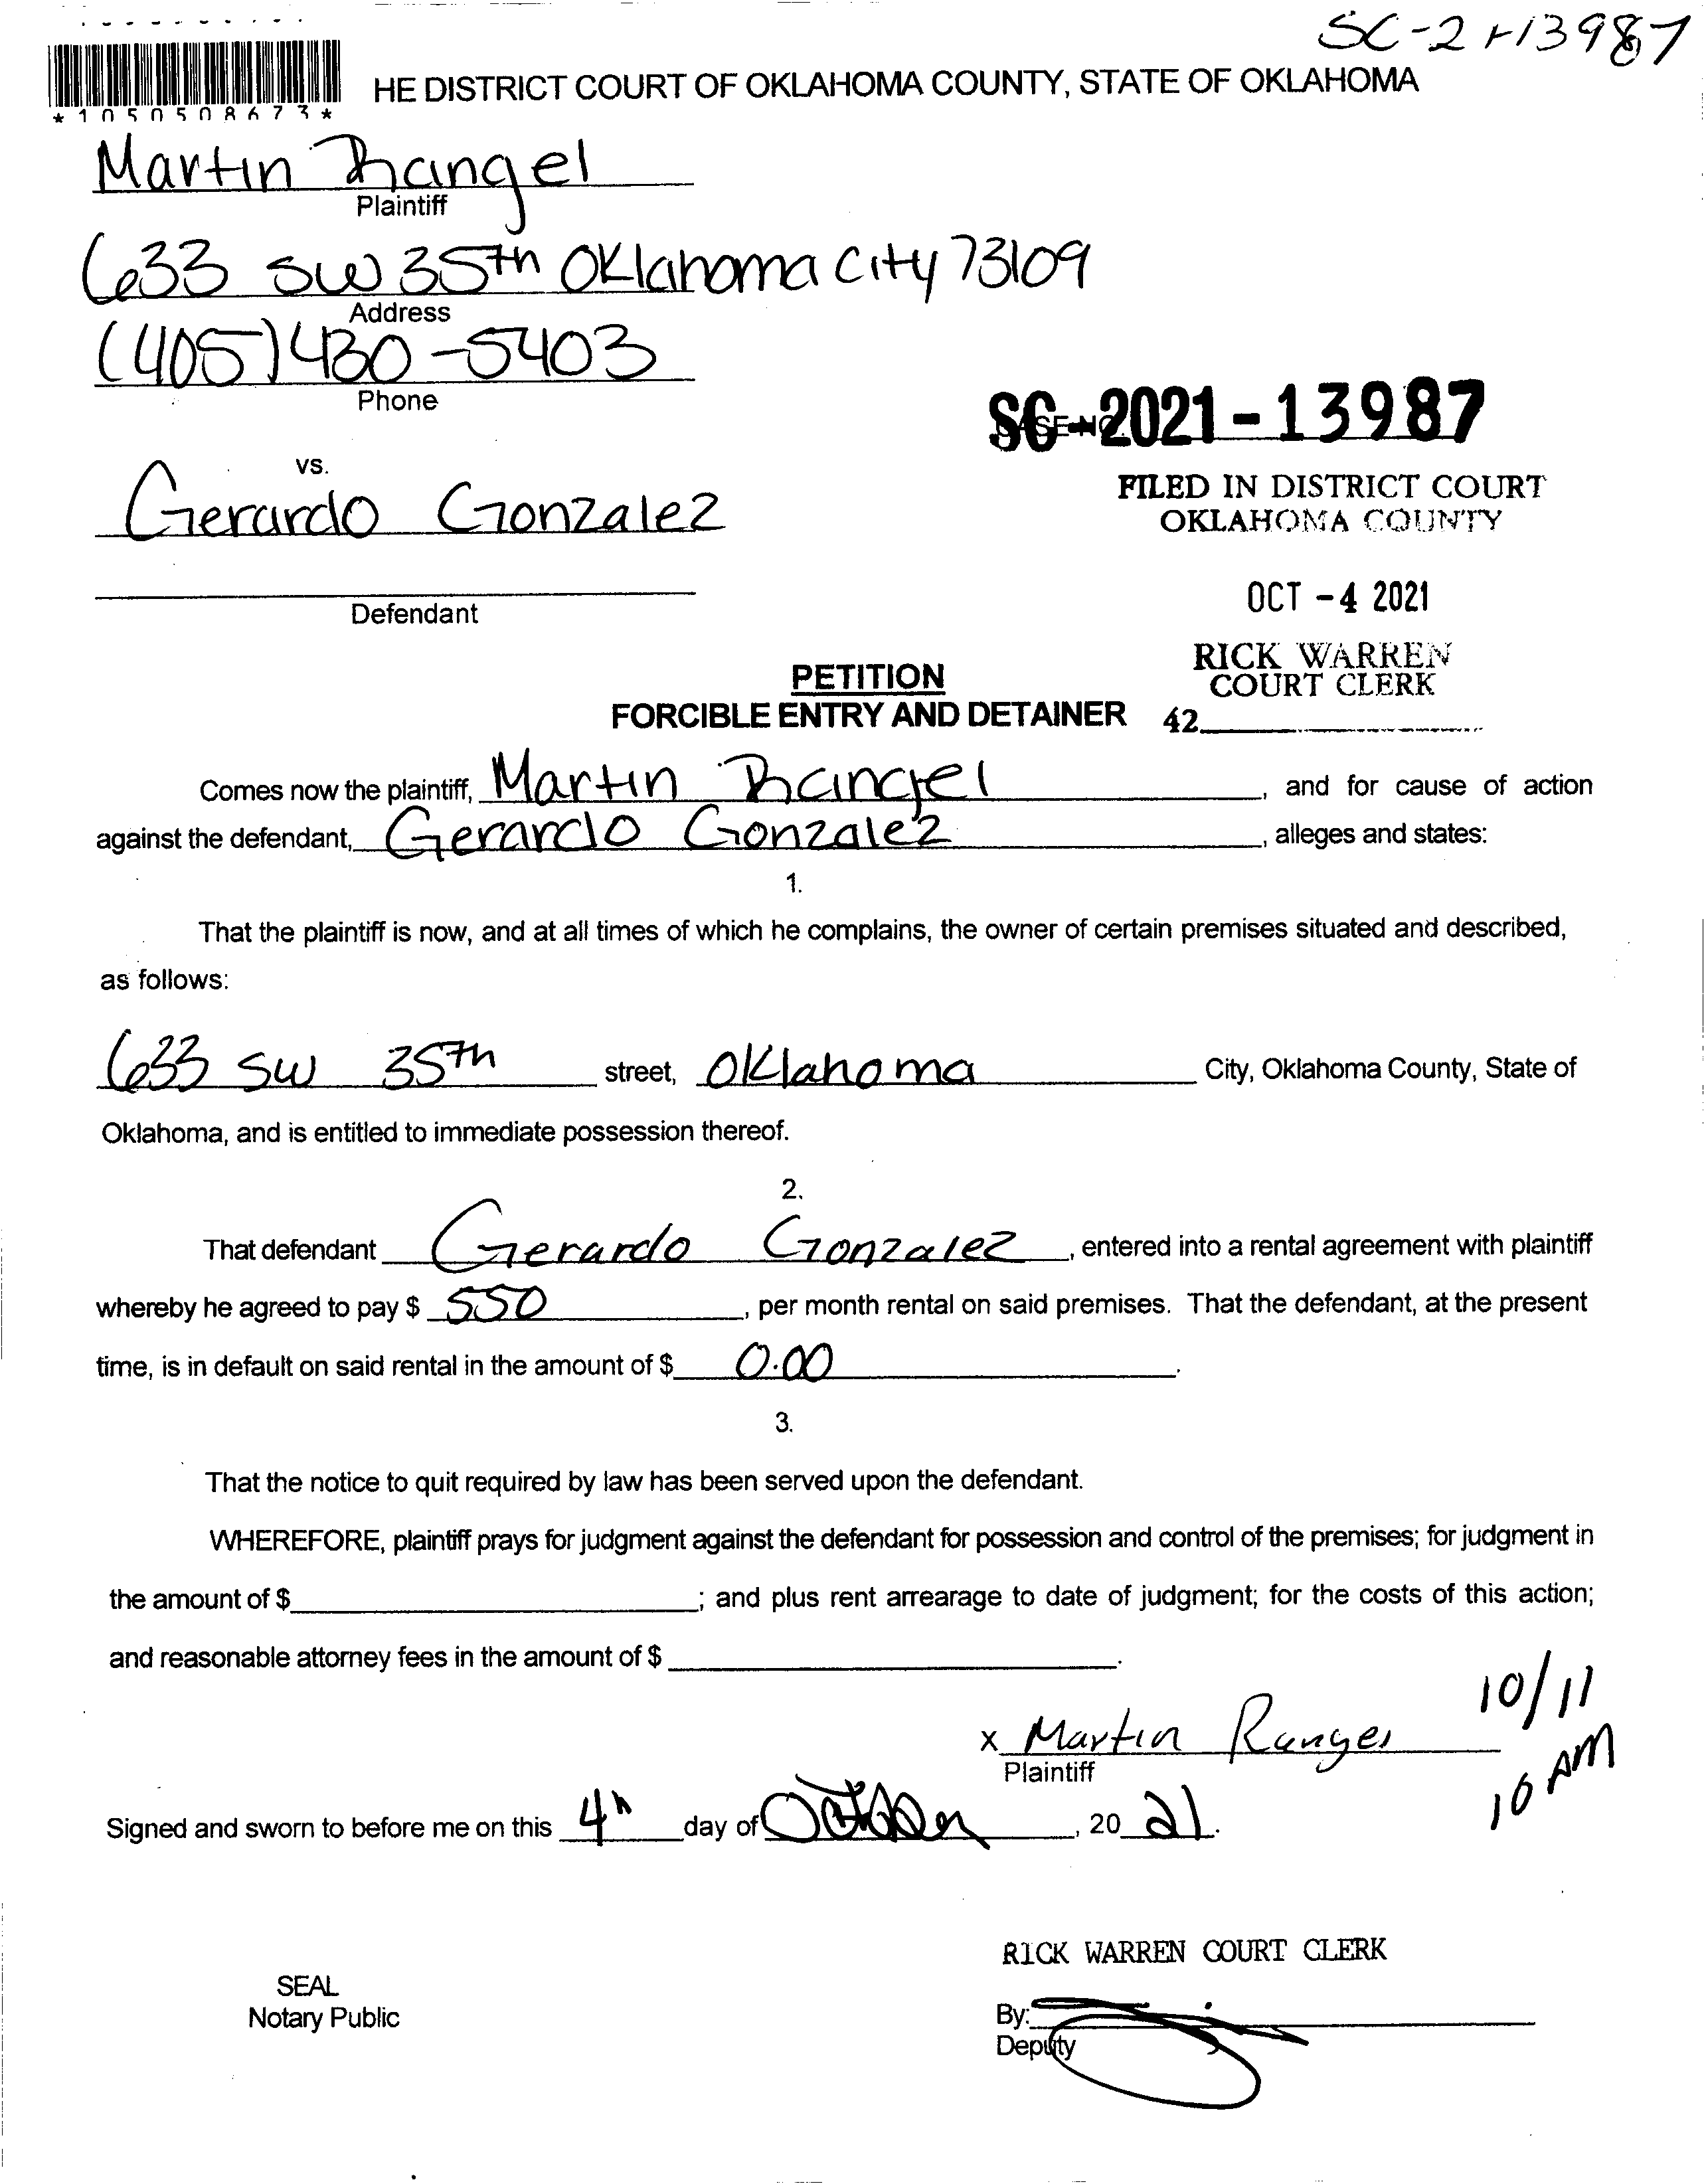 SC-21-13987
HE DISTRICT COURT OF OKLAHOMA COUNTY, STATE OF OKLAHOMA
*1050508673*
Martin Rangel
Plaintiff
633 SW 35th Oklahoma City 73109
Address
(405) 430-5403
Phone
SC-2021-13987
vs.
FILED IN DISTRICT COURT
Gerardo Gonzalez
OKLAHOMA COUNTY
OCT -4 2021
Defendant
RICK WARREN
PETITION
COURT CLERK
FORCIBLE ENTRY AND DETAINER 42
Comes now the plaintiff, Martin Rangel, and for cause of action
against the defendant, Gerardo Gonzalez, alleges and states:
1.
That the plaintiff is now, and at all times of which he complains, the owner of certain premises situated and described,
as follows:
633 SW 35th street, Oklahoma City, Oklahoma County, State of
Oklahoma, and is entitled to immediate possession thereof.
2.
That defendant Gerardo Gonzalez, entered into a rental agreement with plaintiff
whereby he agreed to pay $ 550, per month rental on said premises. That the defendant, at the present
time, is in default on said rental in the amount of $ 0.00.
3.
That the notice to quit required by law has been served upon the defendant.
WHEREFORE, plaintiff prays for judgment against the defendant for possession and control of the premises; for judgment in
the amount of $; and plus rent arrearage to date of judgment; for the costs of this action;
and reasonable attorney fees in the amount of $.
10/11
x Martin Rangel
10 AM
Plaintiff
Signed and sworn to before me on this 4th day of October, 2021.
RICK WARREN COURT CLERK
SEAL
Notary Public
By:
Deputy